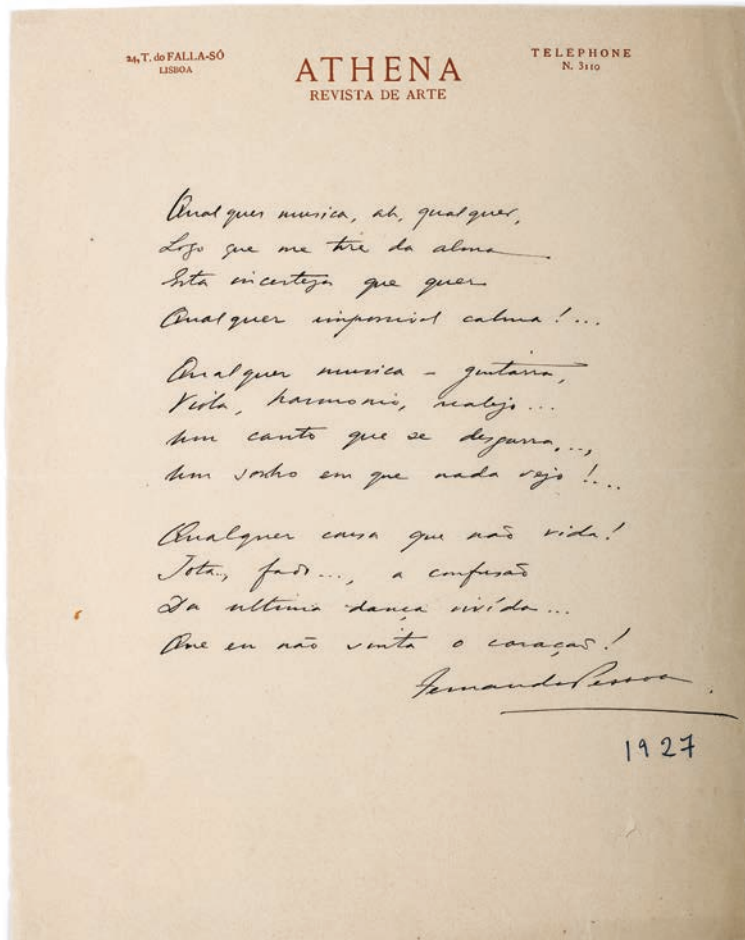 24, T. do FALLA-SÓ
LISBOA
ATHENA
REVISTA DE ARTE
TELEPHONE
N. 3110
Qualquer musica, ah, qualquer,
Logo que me tire da alma
Esta incerteza que quer
Qualquer impossivel calma!...
Qualquer musica – guitarra,
Viola, harmonio, realejo...
Um canto que se desgarra...,
Um sonho em que nada vejo!...
Qualquer cousa que não vida!
Jota, fado..., a confusão
Da ultima dança vivída...
Que eu não sinta o coração!
Fernando Pessoa.
1927